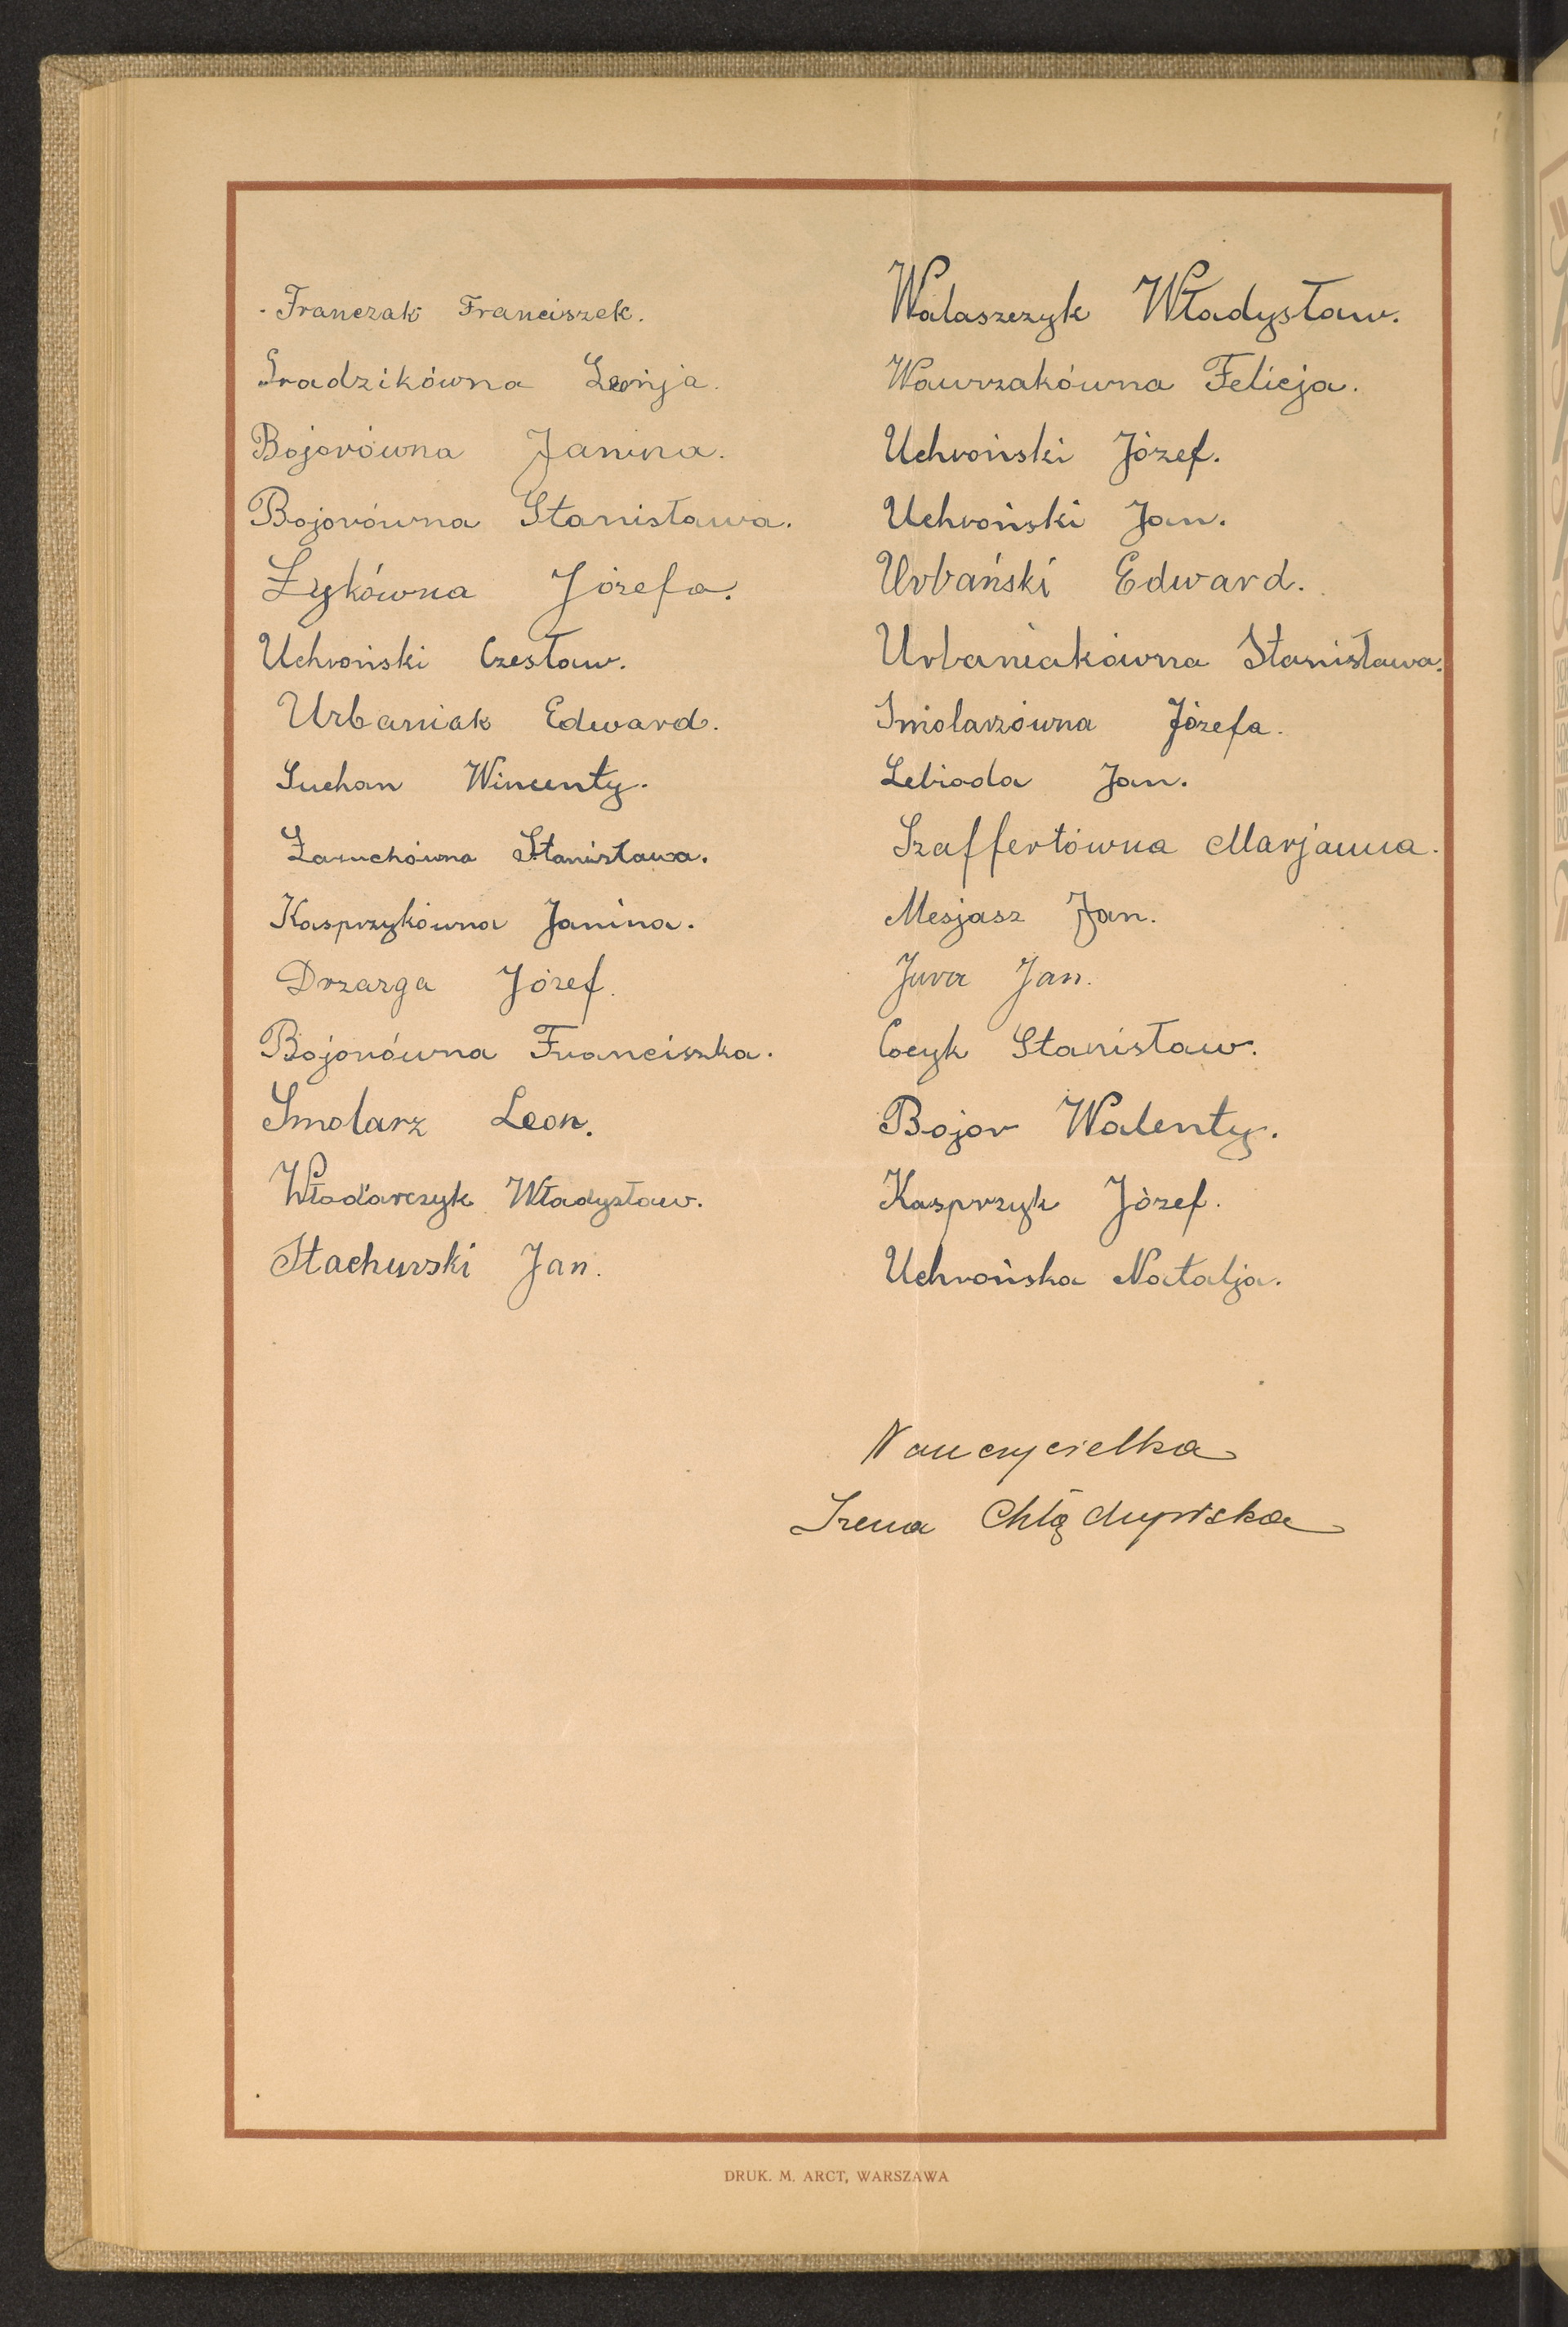 Franczak Franciszek.
Gradzikówna Leonja.
Bojorówna Janina.
Bojorówna Stanisława.
Zykówna Józefa.
Uchroński Czesław.
Urbaniak Edward.
Suchan Wincenty.
Zaruchówna Stanisława.
Kasprzykówna Janina.
Drzazga Józef.
Bojorówna Franciszka.
Smolarz Leon.
Włodarczyk Władysław.
Stachurski Jan.
Walaszczyk Władysław.
Wawrzakówna Felicja.
Uchroński Józef.
Uchroński Jan.
Urbański Edward.
Urbaniakówna Stanisława.
Smolarzówna Józefa.
Lebioda Jan.
Szaffertówna Marjanna.
Mesjasz Jan.
Jura Jan.
Cocyk Stanisław.
Bojor Walenty.
Kasprzyk Józef.
Uchrońska Natalja.
Nauczycielka
Irena Chłądzyńska
DRUK. M. ARCT, WARSZAWA